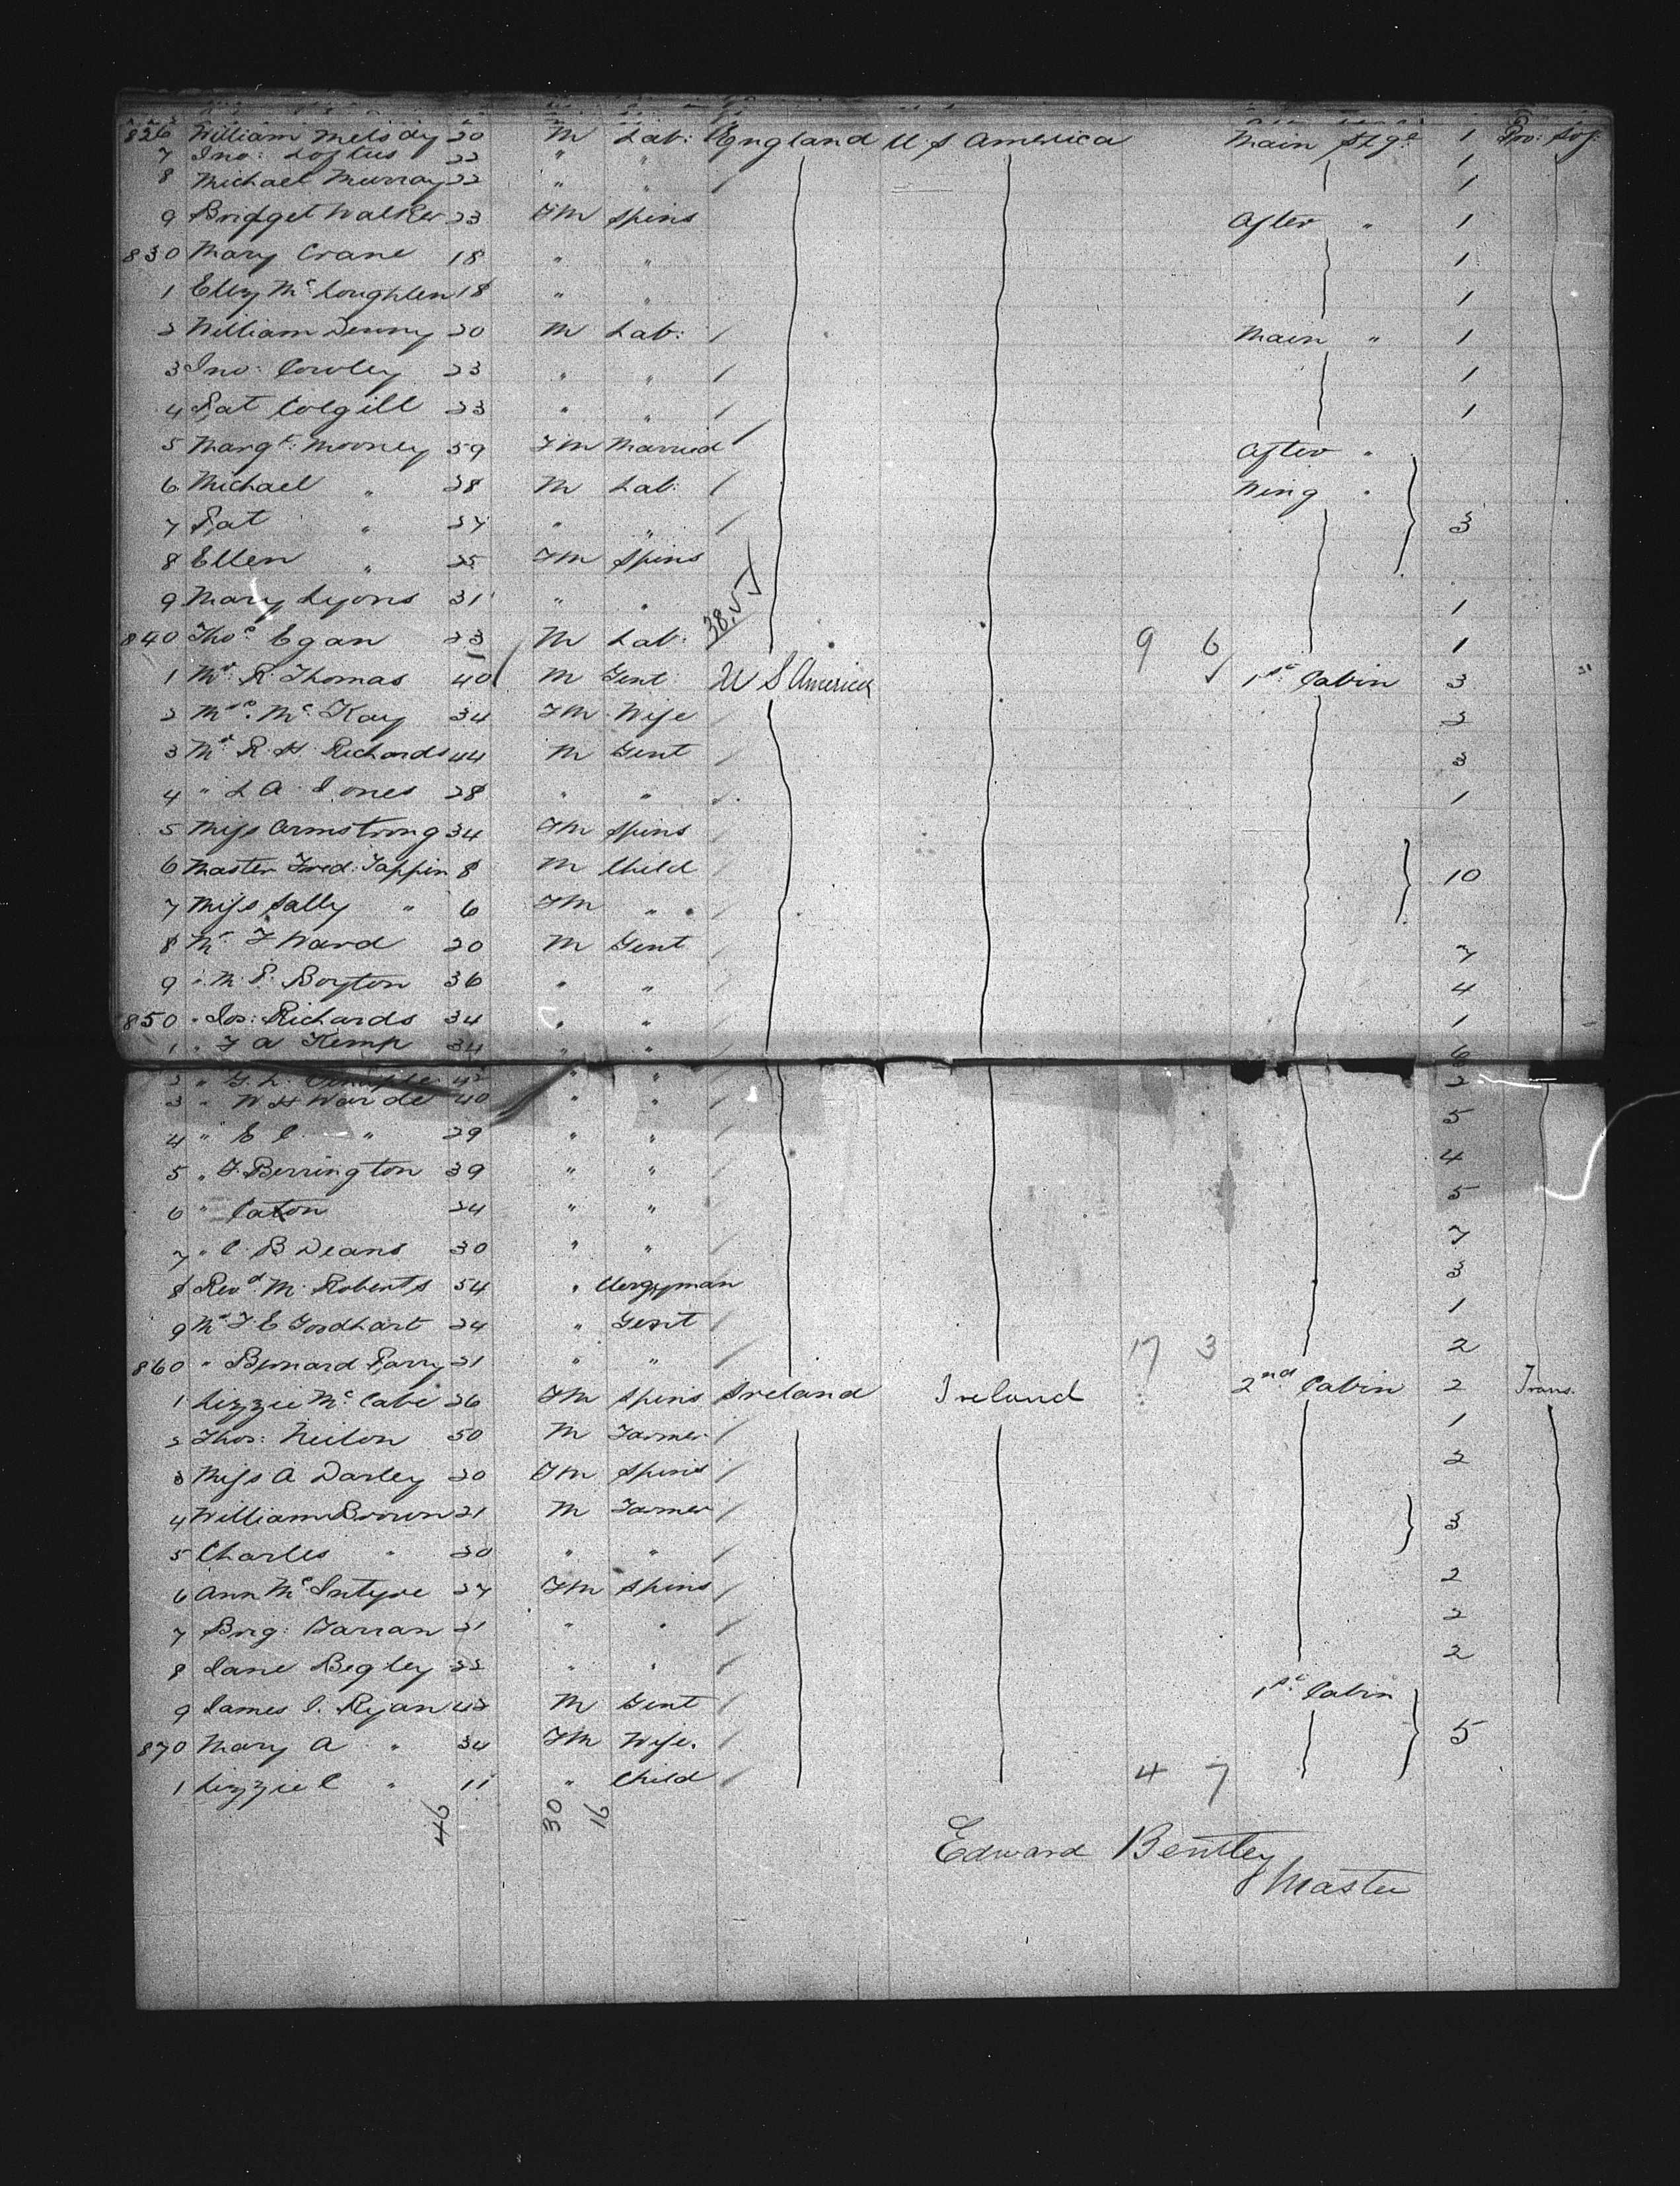 826 William Melody 20 M Lab: England U S America Main Stge 1 Pro: Soj:
7 Jno: Loftus 22 " " 1
8 Michael Murray 22 " " 1
9 Bridget Walker 23 FM Spins After " 1
830 Mary Crane 18 " " 1
1 Ellzy McLoughlen 18 " " 1
2 William Denny 20 M Lab: Main " 1
3 Jno: Cowley 23 " " 1
4 Pat Colgill 23 " " 1
5 Margt: Mooney 59 FM Married After "
6 Michael " 28 M Lab: Wing "
7 Pat " 27 " " 3
8 Ellen " 25 FM Spins
9 Mary Lyons 31 " " 1
840 Thos Egan 23 M Lab: 38.55 9 6 1
1 Mr. R. Thomas 40 M Gent: U S America 1st Cabin 3
2 Mrs. McKay 34 FM Wife 2
3 Mr. R. H. Richards 44 M Gent 3
4 " L A Jones 28 " " 1
5 Miss Armstrong 34 FM Spins
6 Master Fred: Tappin 8 M Child 10
7 Miss Sally " 6 FM "
8 Mr. F Ward 20 M Gent 7
9 " M. P. Boyton 36 " " 4
850 " Jos: Richards 34 " " 1
1 " F A Kemp 34 " " 6
2 " G. L. 42 " " 2
3 " W H Warde 40 " " 5
4 " E C " 29 " " 4
5 " F. Berrington 39 " " 5
6 " Caton 24 " " 7
7 " C. B Deans 30 " " 3
8 Revd. M. Roberts 54 " Clergyman 1
9 Mr F. E Goodhart 24 " Gent 2
860 " Bernard Parry 21 " " 17 3
1 Lizzie McCabe 26 FM Spins Ireland Ireland 2nd Cabin 2 Trans.
2 Thos: Neilon 50 M Farmer 1
3 Miss A Darley 20 FM Spins 2
4 William Brown 21 M Farmer 3
5 Charles " 20 " "
6 Ann McIntyre 27 FM Spins 2
7 Brig: Farran 21 " " 2
8 Jane Begley 22 " " 2
9 James J. Ryan 42 M Gent 1st Cabin
870 Mary A " 34 FM Wife. 5
1 Lizzie C " 11 " Child 4 7
46 30 16
Edward Bentley
Master